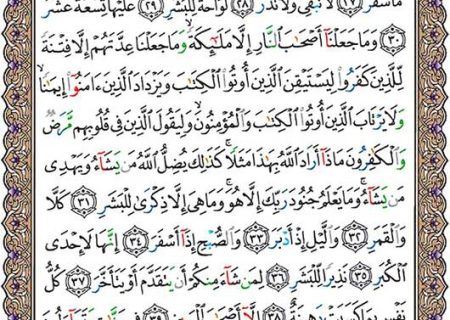 مَاسَقَرُ ﴿٢٧﴾ لَا تُبْقِى وَلَا تَذَرُ ﴿٢٨﴾ لَوَّاحَةٌ لِّلْبَشَرِ ﴿٢٩﴾ عَلَيْهَا تِسْعَةَ عَشَرَ
﴿٣٠﴾ وَمَا جَعَلْنَا أَصْحَٰبَ النَّارِ إِلَّا مَلَٰٓئِكَةً وَمَا جَعَلْنَا عِدَّتَهُمْ إِلَّا فِتْنَةً
لِّلَّذِينَ كَفَرُوا۟ لِيَسْتَيْقِنَ الَّذِينَ أُوتُوا۟ الْكِتَٰبَ وَيَزْدَادَ الَّذِينَ ءَامَنُوٓا۟ إِيمَٰنًا
وَلَا يَرْتَابَ الَّذِينَ أُوتُوا۟ الْكِتَٰبَ وَالْمُؤْمِنُونَ وَلِيَقُولَ الَّذِينَ فِى قُلُوبِهِم مَّرَضٌ
وَالْكَٰفِرُونَ مَاذَآ أَرَادَ اللَّهُ بِهَٰذَا مَثَلًا كَذَٰلِكَ يُضِلُّ اللَّهُ مَن يَشَآءُ وَيَهْدِى
مَن يَشَآءُ وَمَا يَعْلَمُ جُنُودَ رَبِّكَ إِلَّا هُوَ وَمَا هِىَ إِلَّا ذِكْرَىٰ لِلْبَشَرِ ﴿٣١﴾ كَلَّا
وَالْقَمَرِ ﴿٣٢﴾ وَالَّيْلِ إِذْ أَدْبَرَ ﴿٣٣﴾ وَالصُّبْحِ إِذَآ أَسْفَرَ ﴿٣٤﴾ إِنَّهَا لَإِحْدَى
الْكُبَرِ ﴿٣٥﴾ نَذِيرًا لِّلْبَشَرِ ﴿٣٦﴾ لِمَن شَآءَ مِنكُمْ أَن يَتَقَدَّمَ أَوْ يَتَأَخَّرَ ﴿٣٧﴾ كُلُّ
نَفْسٍ بِمَا كَسَبَتْ رَهِينَةٌ ﴿٣٨﴾ إِلَّآ أَصْحَٰبَ الْيَمِينِ ﴿٣٩﴾ فِى جَنَّٰتٍ يَتَسَآءَلُونَ